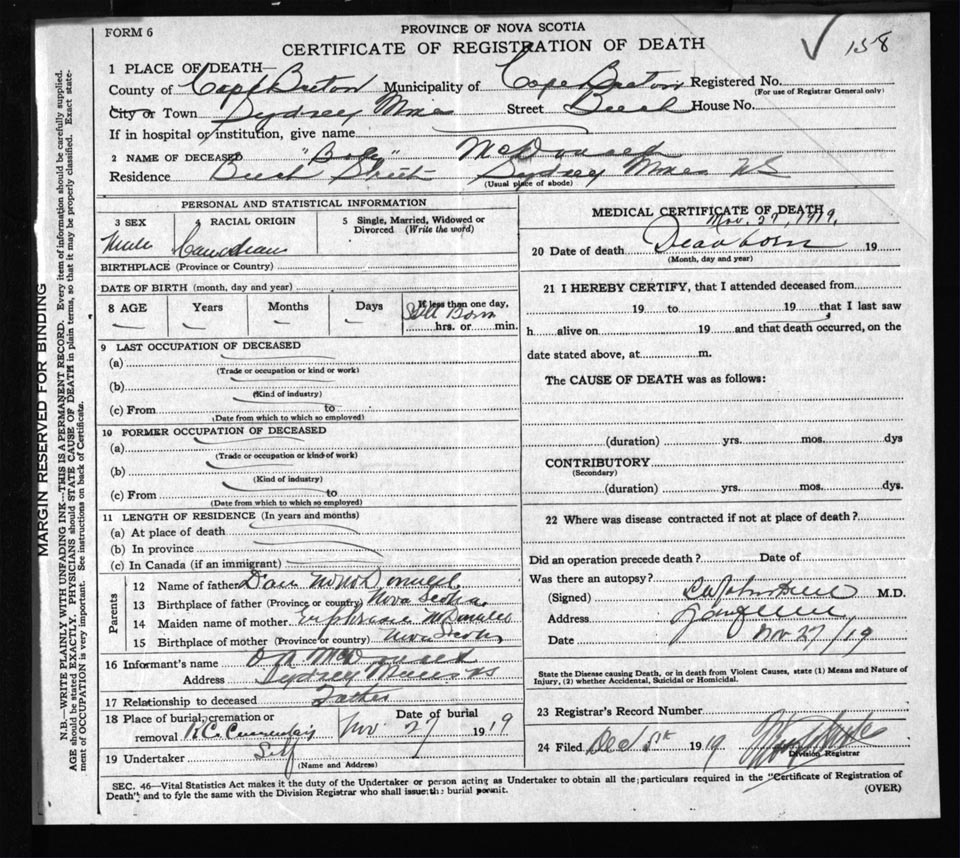 FORM 6
PROVINCE OF NOVA SCOTIA
CERTIFICATE OF REGISTRATION OF DEATH
✓ 158
1 PLACE OF DEATH—
County of Cape Breton Municipality of Cape Breton Registered No.
(For use of Registrar General only)
City or Town Sydney Mines Street House No.
If in hospital or institution, give name
2 NAME OF DECEASED "Baby" McDonald
Residence Street Sydney Mines NS
(Usual place of abode)
PERSONAL AND STATISTICAL INFORMATION
3 SEX 4 RACIAL ORIGIN 5 Single, Married, Widowed or Divorced (Write the word)
Male Canadian
BIRTHPLACE (Province or Country)
DATE OF BIRTH (month, day and year)
8 AGE Years Months Days If less than one day,
Still Born
hrs. or min.
9 LAST OCCUPATION OF DECEASED
(a)
(Trade or occupation or kind or work)
(b)
(Kind of industry)
(c) From to
(Date from which to which so employed)
10 FORMER OCCUPATION OF DECEASED
(a)
(Trade or occupation or kind of work)
(b)
(Kind of industry)
(c) From to
(Date from which to which so employed)
11 LENGTH OF RESIDENCE (In years and months)
(a) At place of death
(b) In province
(c) In Canada (if an immigrant)
Parents
12 Name of father Dan
13 Birthplace of father (Province or country) Nova Scotia
14 Maiden name of mother
15 Birthplace of mother (Province or country) Nova Scotia
16 Informant's name McDonald
Address Sydney Mines NS
17 Relationship to deceased Father
18 Place of burial, cremation or removal R.C. Cemetery Date of burial Nov 27 1919
19 Undertaker Self
(Name and Address)
MEDICAL CERTIFICATE OF DEATH
Nov. 27, 1919.
20 Date of death Dead born 19
(Month, day and year)
21 I HEREBY CERTIFY, that I attended deceased from
19 to 19 that I last saw
h alive on 19 and that death occurred, on the
date stated above, at m.
The CAUSE OF DEATH was as follows:
(duration) yrs. mos. dys
CONTRIBUTORY
(Secondary)
(duration) yrs. mos. dys.
22 Where was disease contracted if not at place of death?
Did an operation precede death? Date of
Was there an autopsy?
(Signed) M.D.
Address
Date Nov 27/19
State the Disease causing Death, or in death from Violent Causes, state (1) Means and Nature of
Injury, (2) whether Accidental, Suicidal or Homicidal.
23 Registrar's Record Number
24 Filed Dec 1919
Division Registrar
SEC. 46—Vital Statistics Act makes it the duty of the Undertaker or person acting as Undertaker to obtain all the particulars required in the "Certificate of Registration of
Death" and to fyle the same with the Division Registrar who shall issue the burial permit.
(OVER)
MARGIN RESERVED FOR BINDING
N.B.—WRITE PLAINLY WITH UNFADING INK—THIS IS A PERMANENT RECORD. Every item of information should be carefully supplied.
AGE should be stated EXACTLY. PHYSICIANS should STATE CAUSE OF DEATH in plain terms, so that it may be properly classified. Exact state-
ment of OCCUPATION is very important. See instructions on back of Certificate.